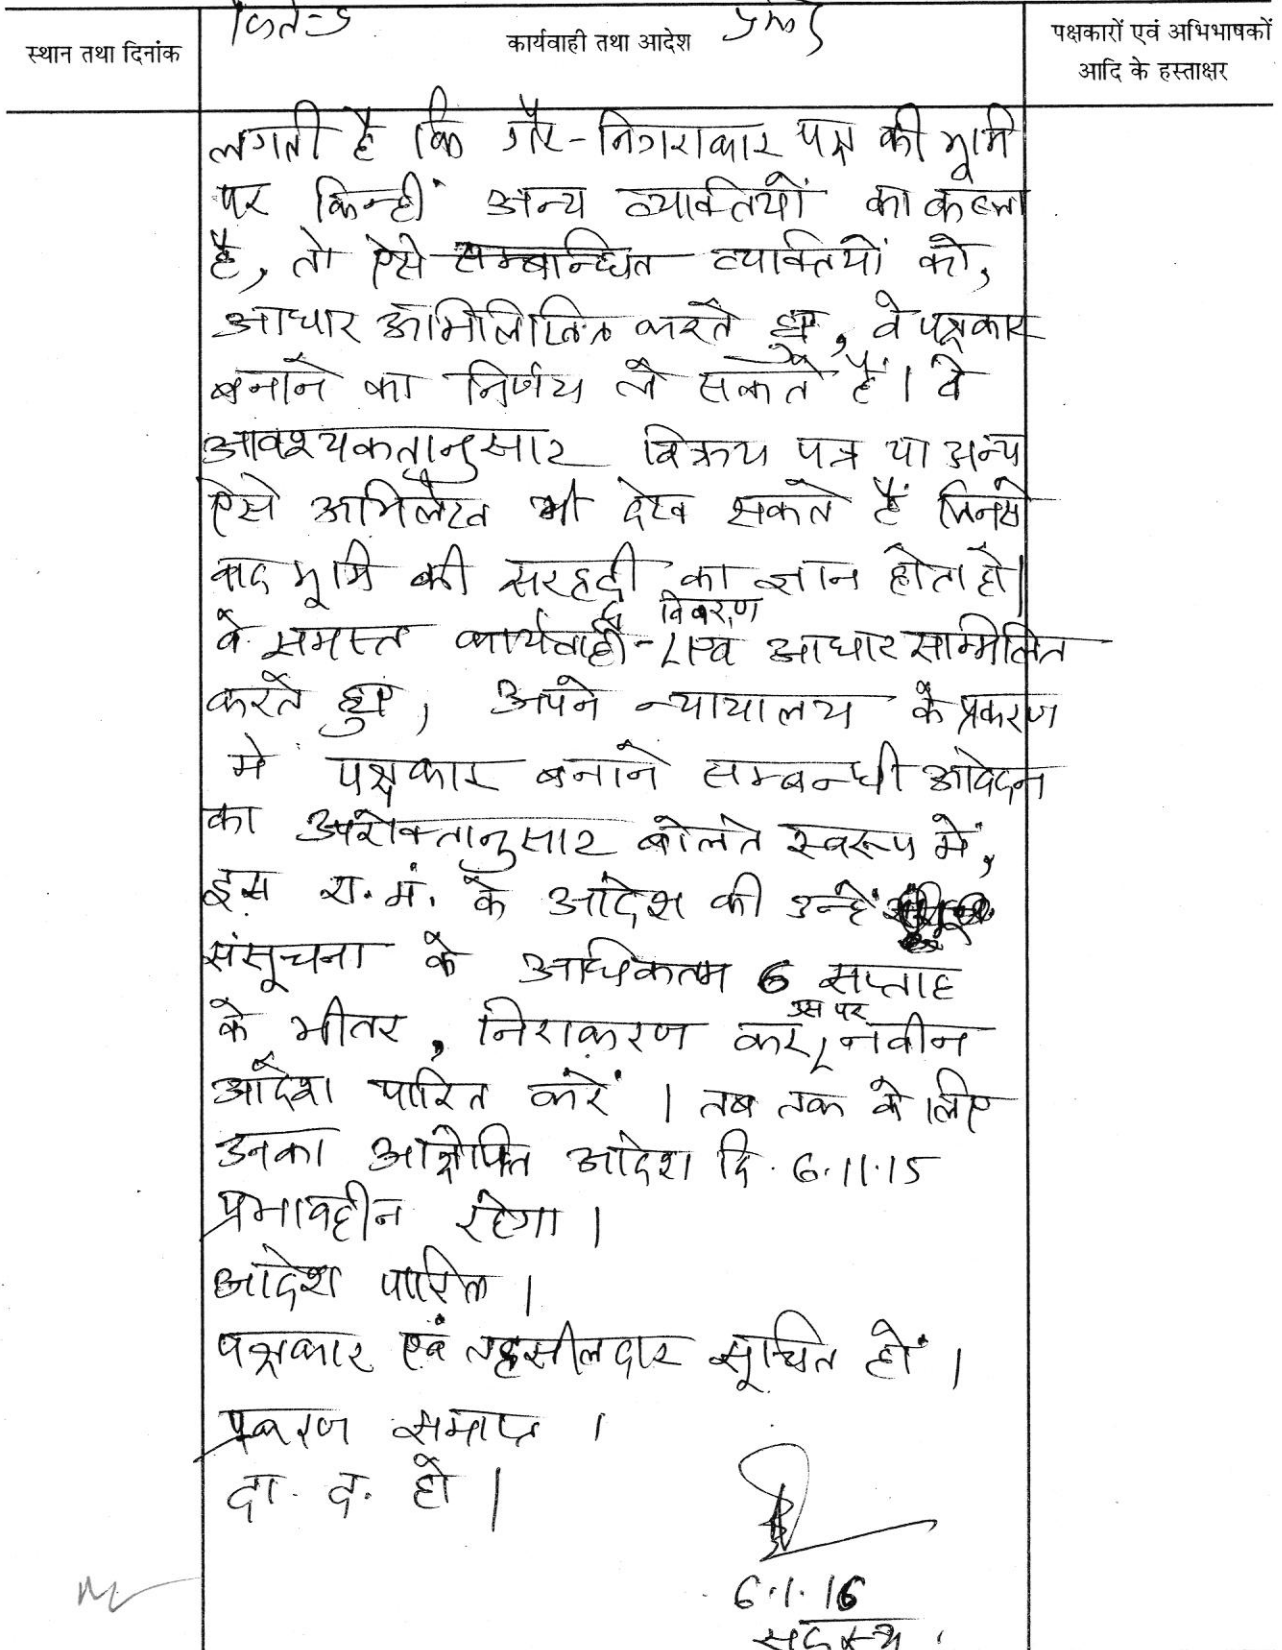 स्थान तथा दिनांक
कार्यवाही तथा आदेश
पक्षकारों एवं अभिभाषकों
आदि के हस्ताक्षर
लगती है कि गैर-निगराकार पक्ष की भूमि
पर किन्हीं अन्य व्यक्तियों का कब्जा
है, तो ऐसे सम्बन्धित व्यक्तियों को,
आधार अभिलिखित करते हुए, वे पक्षकार
बनाने का निर्णय ले सकते हैं। वे
आवश्यकतानुसार विक्रय पत्र या अन्य
ऐसे अभिलेख भी देख सकते हैं जिनसे
वाद भूमि की सरहदों का ज्ञान होता हो।
विवरण
वे समस्त कार्यवाही एवं आधार सम्मिलित
करते हुए, अपने न्यायालय के प्रकरण
में पक्षकार बनाने सम्बन्धी आवेदन
का उपरोक्तानुसार बोलते स्वरूप में,
इस रा. मं. के आदेश की उन्हें
संसूचना के अधिकतम 6 सप्ताह
उस पर
के भीतर, निराकरण कर, नवीन
आदेश पारित करें। तब तक के लिए
उनका आक्षेपित आदेश दि. 6.11.15
प्रभावहीन रहेगा।
आदेश पारित।
पक्षकार एवं तहसीलदार सूचित हों।
प्रकरण समाप्त।
दा. द. हो।
6.1.16
सदस्य